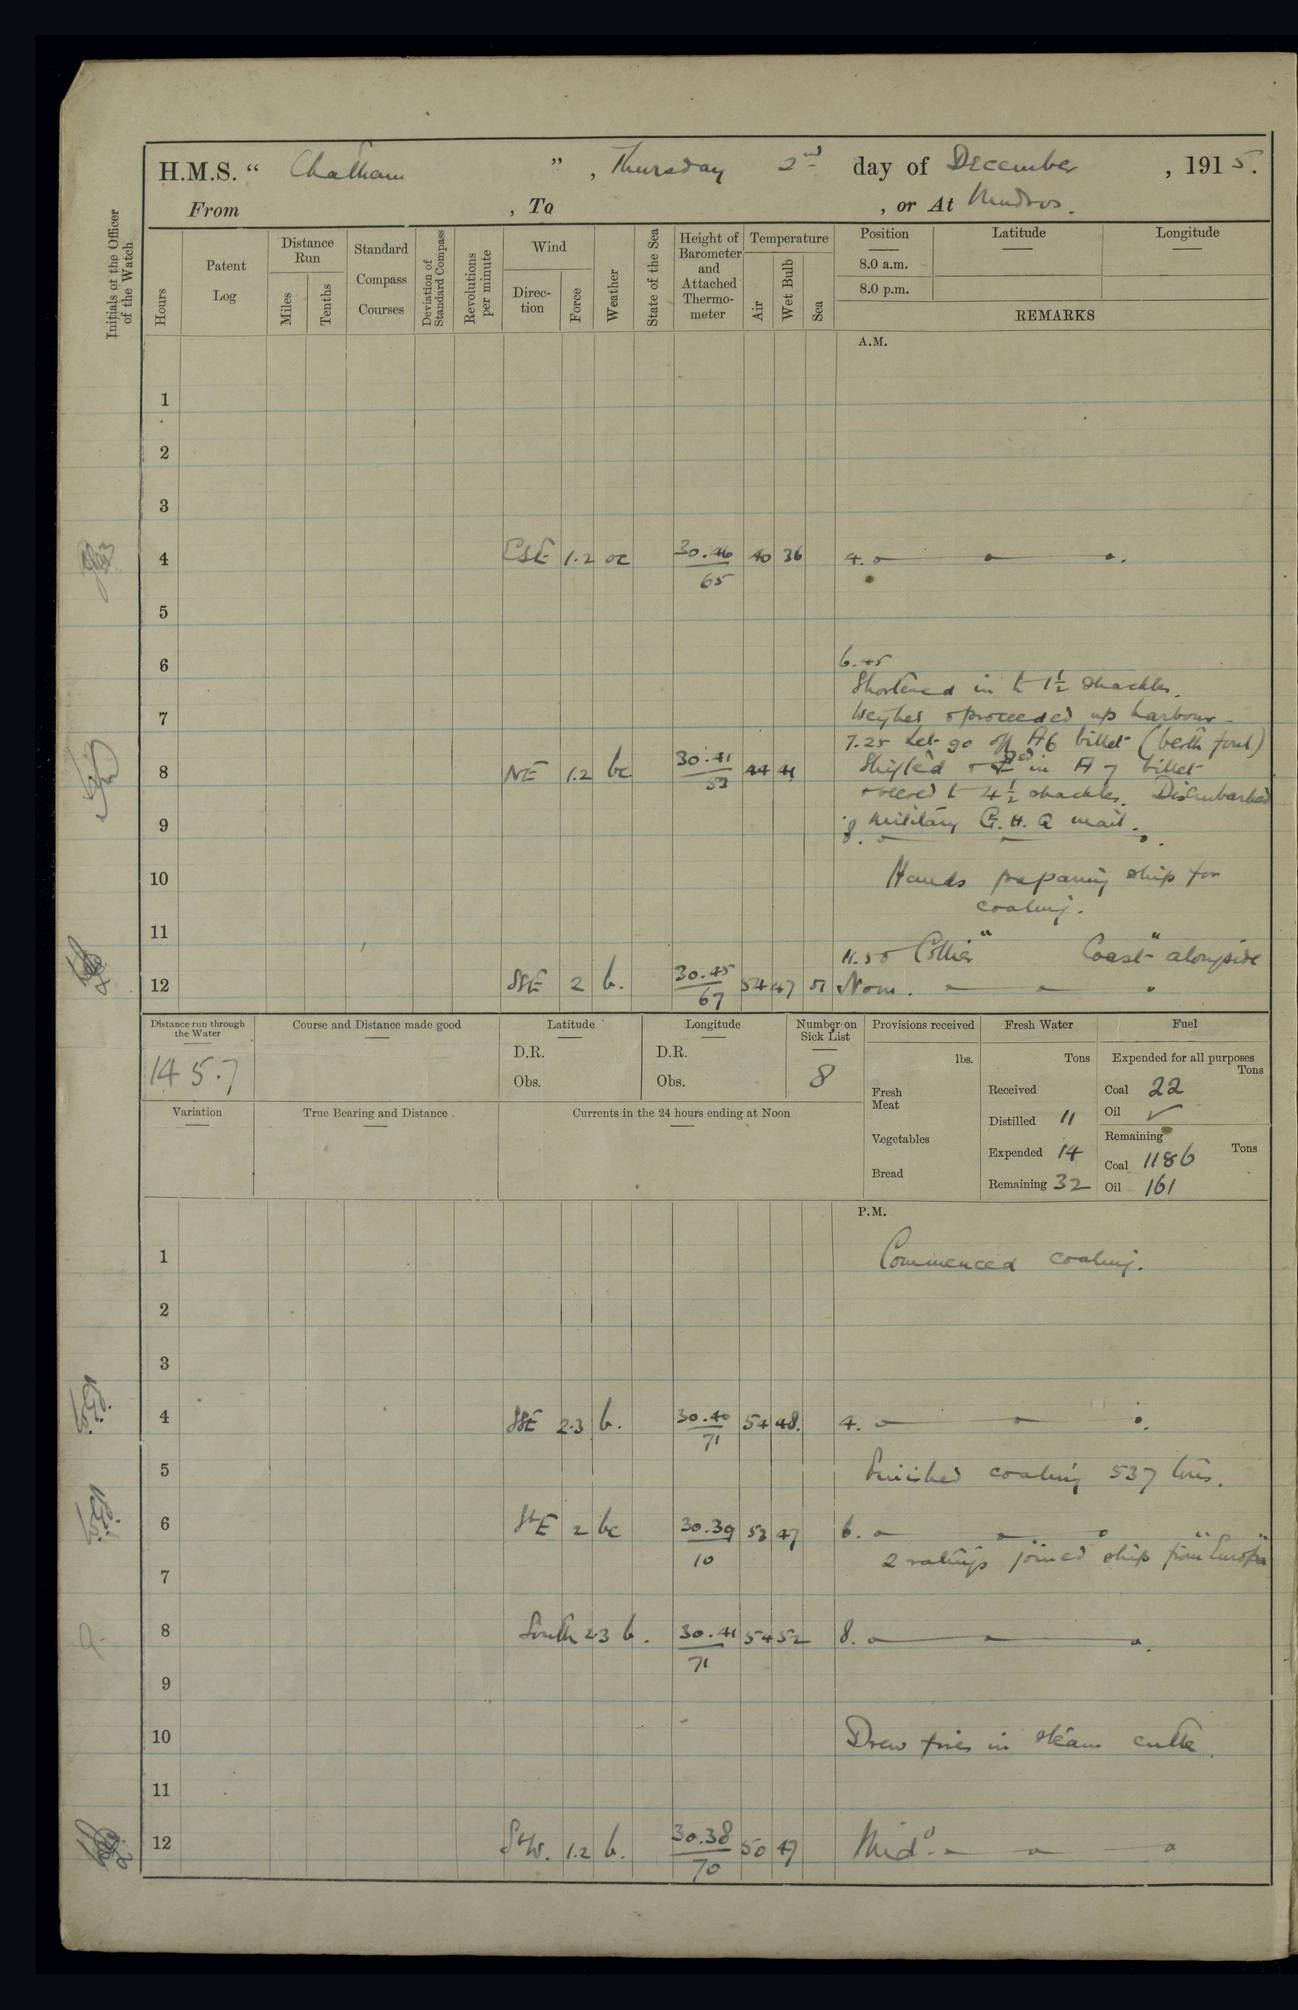 H.M.S. " Chatham ", Thursday 2nd day of December, 1915.
From , To , or At Mudros.
Initials of the Officer of the Watch
Hours
Patent Log
Distance Run
Miles
Tenths
Standard Compass Courses
Deviation of Standard Compass
Revolutions per minute
Wind
Direction
Force
Weather
State of the Sea
Height of Barometer and Attached Thermometer
Temperature
Air
Wet Bulb
Sea
Position
8.0 a.m.
8.0 p.m.
Latitude
Longitude
REMARKS
A.M.
1
2
3
4 ESE 1.2 oc 30.46 40 36 4.
65
5
6 6.45
Shortened in to 1½ shackles.
7 Weighed & proceeded up harbour.
7.25 Let go off A6 billet (berth foul)
8 NE 1.2 bc 30.41 44 41 Shifted in A7 billet
53
& veered to 4½ shackles. Disembarked
9 military G.H.Q mail.
8.
10 Hands preparing ship for
coaling.
11
11.50 Collier " Coast" alongside
12 SSE 2 b. 30.45 54 47 51 Noon.
67
Distance run through the Water
145.7
Course and Distance made good
Latitude
D.R.
Obs.
Longitude
D.R.
Obs.
Number on Sick List
8
Provisions received
lbs.
Fresh Meat
Vegetables
Bread
Fresh Water
Tons
Received
Distilled 11
Expended 14
Remaining 32
Fuel
Expended for all purposes
Tons
Coal 22
Oil ✓
Remaining
Tons
Coal 1186
Oil 161
Variation
True Bearing and Distance
Currents in the 24 hours ending at Noon
P.M.
1 Commenced coaling.
2
3
4 SSE 2.3 b. 30.40 54 48. 4.
71
5 Finished coaling 537 tons.
6 SbE 2 bc 30.39 53 47 6.
70
2 ratings joined ship from "Europa"
7
8 South 2.3 b. 30.41 54 52 8.
71
9
10 Drew fires in steam cutter.
11
12 SbW. 1.2 b. 30.38 50 47 Midt.
70